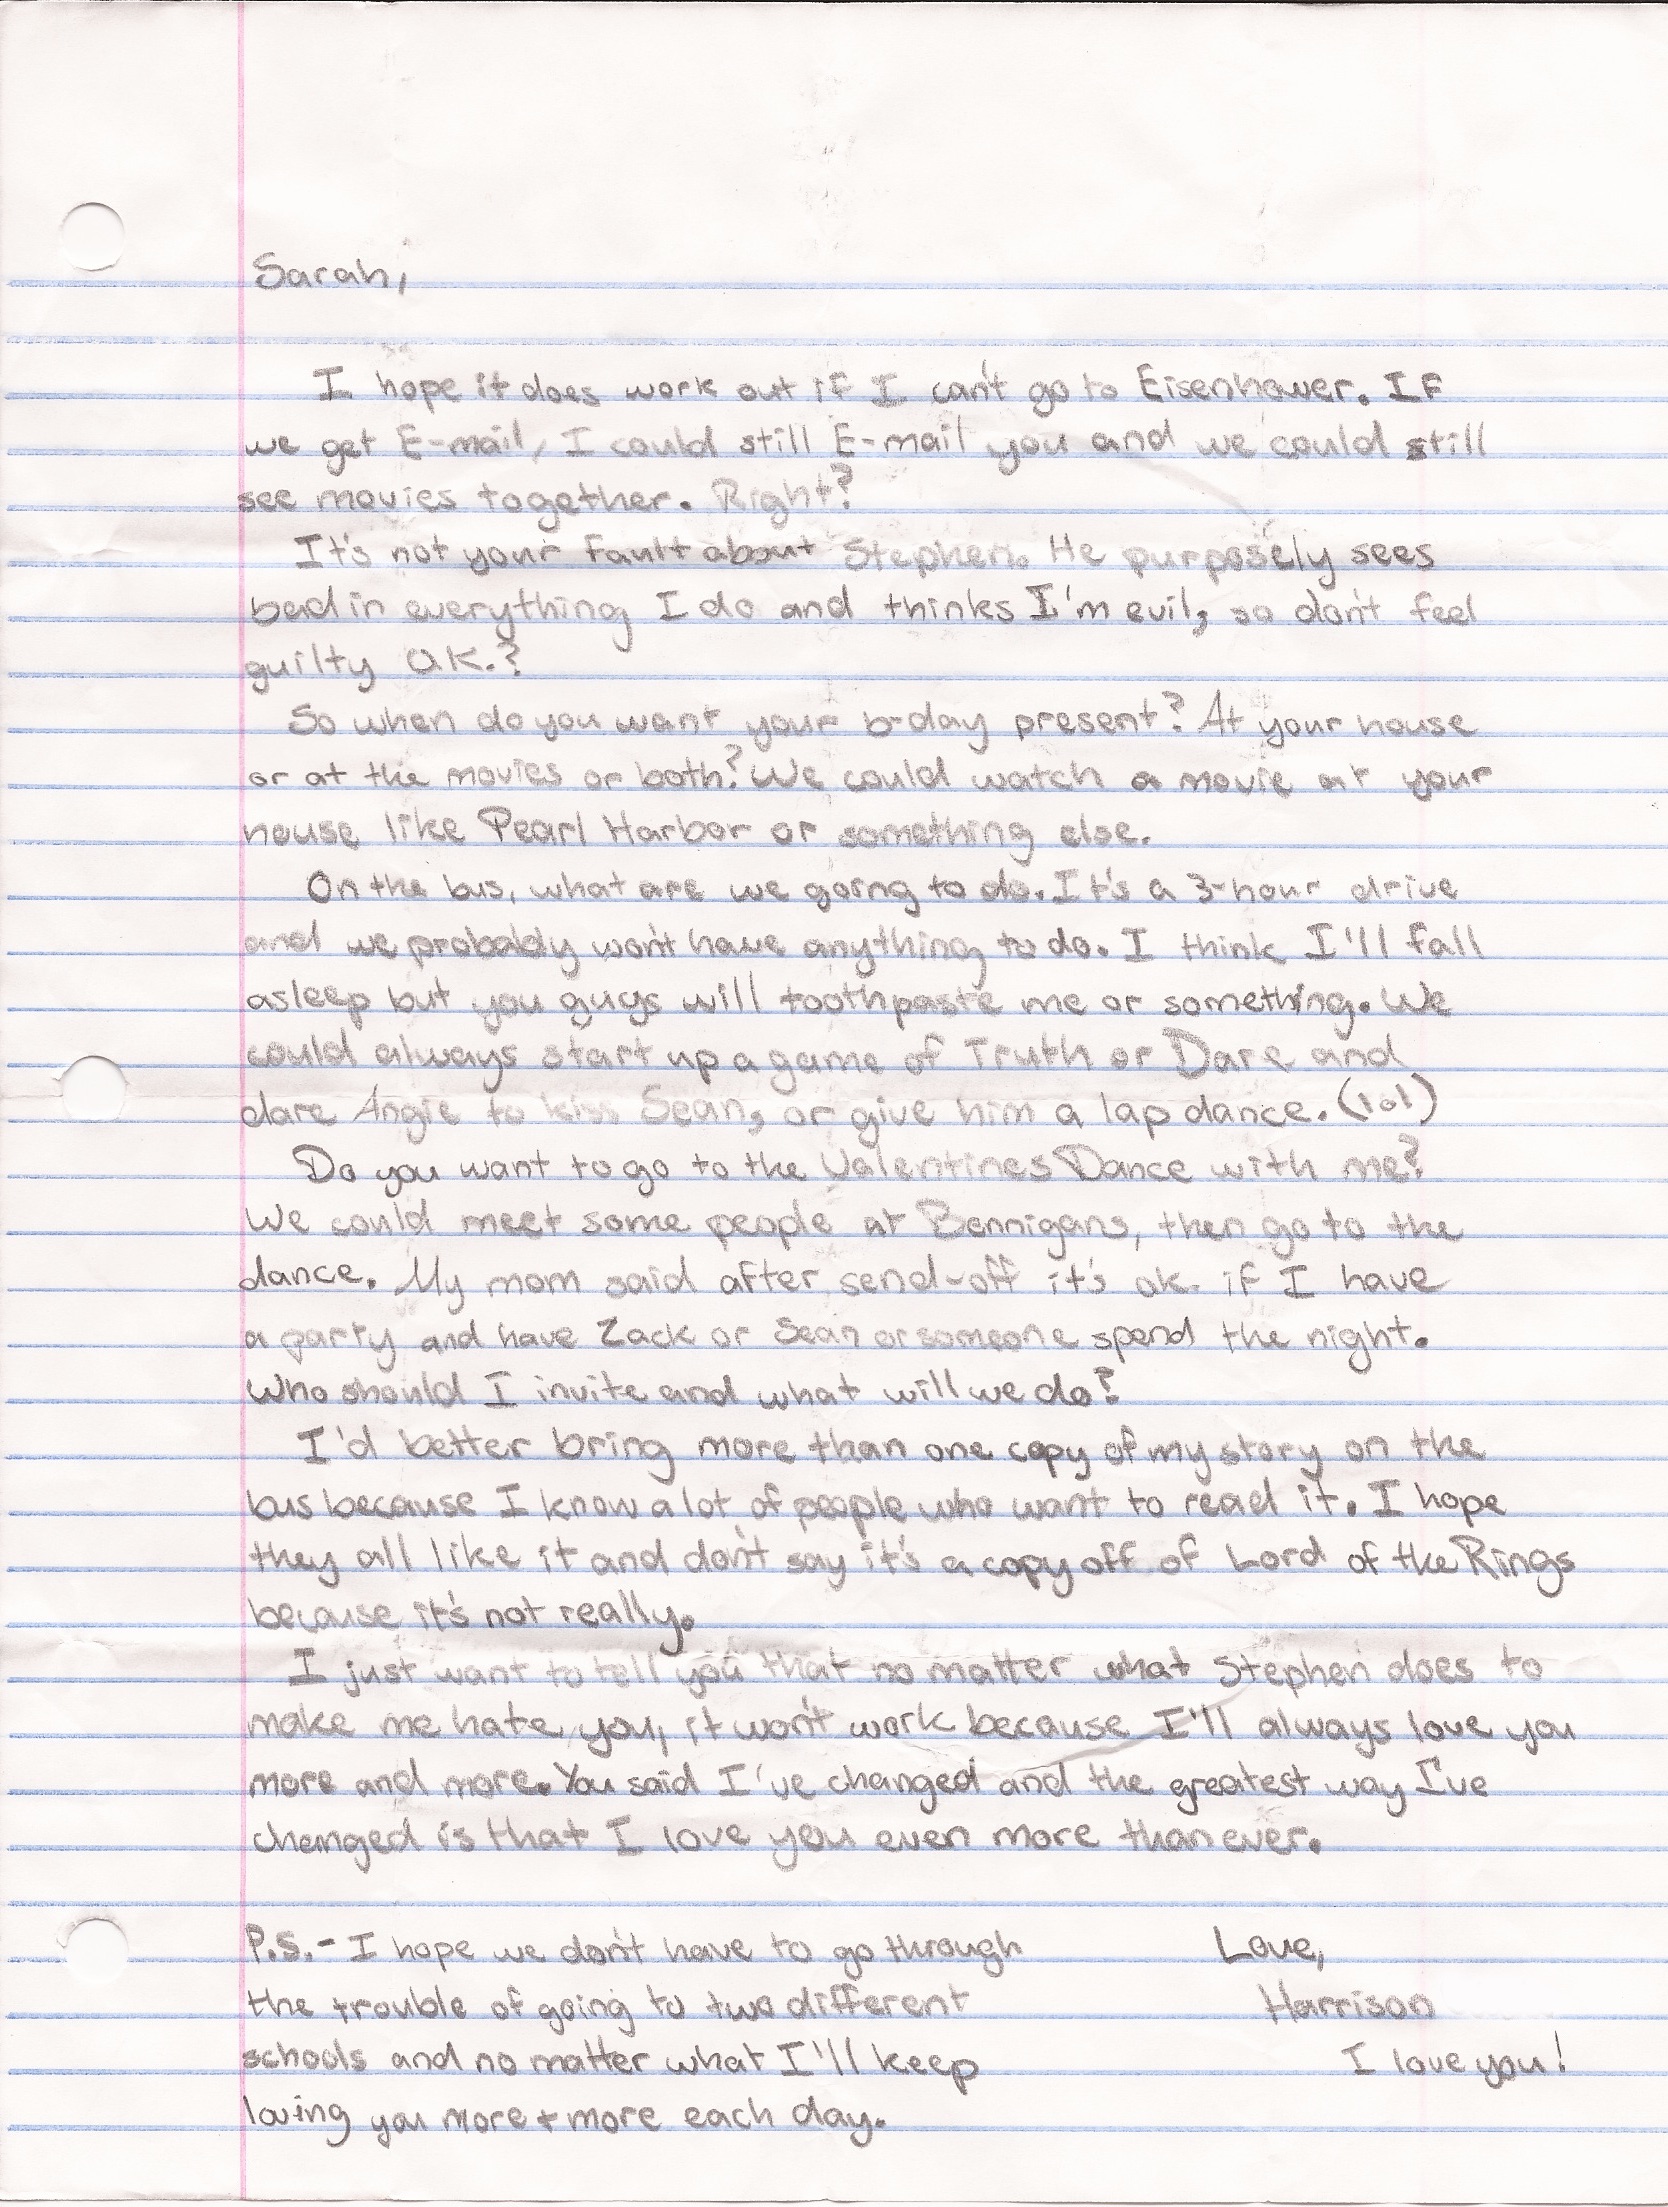 Sarah,
I hope it does work out if I can't go to Eisenhower. If
we get E-mail, I could still E-mail you and we could still
see movies together. Right?
It's not your fault about Stephen. He purposely sees
bad in everything I do and thinks I'm evil, so don't feel
guilty O.K.?
So when do you want your b-day present? At your house
or at the movies or both? We could watch a movie at your
house like Pearl Harbor or something else.
On the bus, what are we going to do. It's a 3-hour drive
and we probably won't have anything to do. I think I'll fall
asleep but you guys will toothpaste me or something. We
could always start up a game of Truth or Dare and
dare Angie to kiss Sean, or give him a lap dance. (lol)
Do you want to go to the Valentines Dance with me?
We could meet some people at Bennigans, then go to the
dance. My mom said after send-off it's ok. if I have
a party and have Zack or Sean or someone spend the night.
Who should I invite and what will we do?
I'd better bring more than one copy of my story on the
bus because I know a lot of people who want to read it. I hope
they all like it and don't say it's a copy off of Lord of the Rings
because it's not really.
I just want to tell you that no matter what Stephen does to
make me hate you, it won't work because I'll always love you
more and more. You said I've changed and the greatest way I've
changed is that I love you even more than ever.
P.S.- I hope we don't have to go through
the trouble of going to two different
schools and no matter what I'll keep
loving you more + more each day.
Love,
Harrison
I love you!